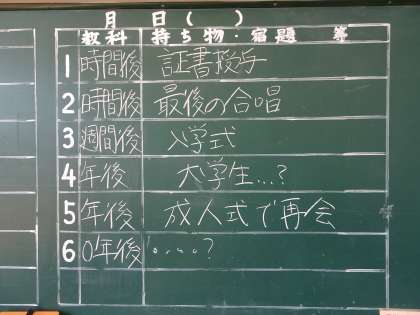 月 日( )
教科 持ち物・宿題 等
1 時間後 証書授与
2 時間後 最後の合唱
3 週間後 入学式
4 年後 大学生...?
5 年後 成人式で再会
6 0年後 ......?